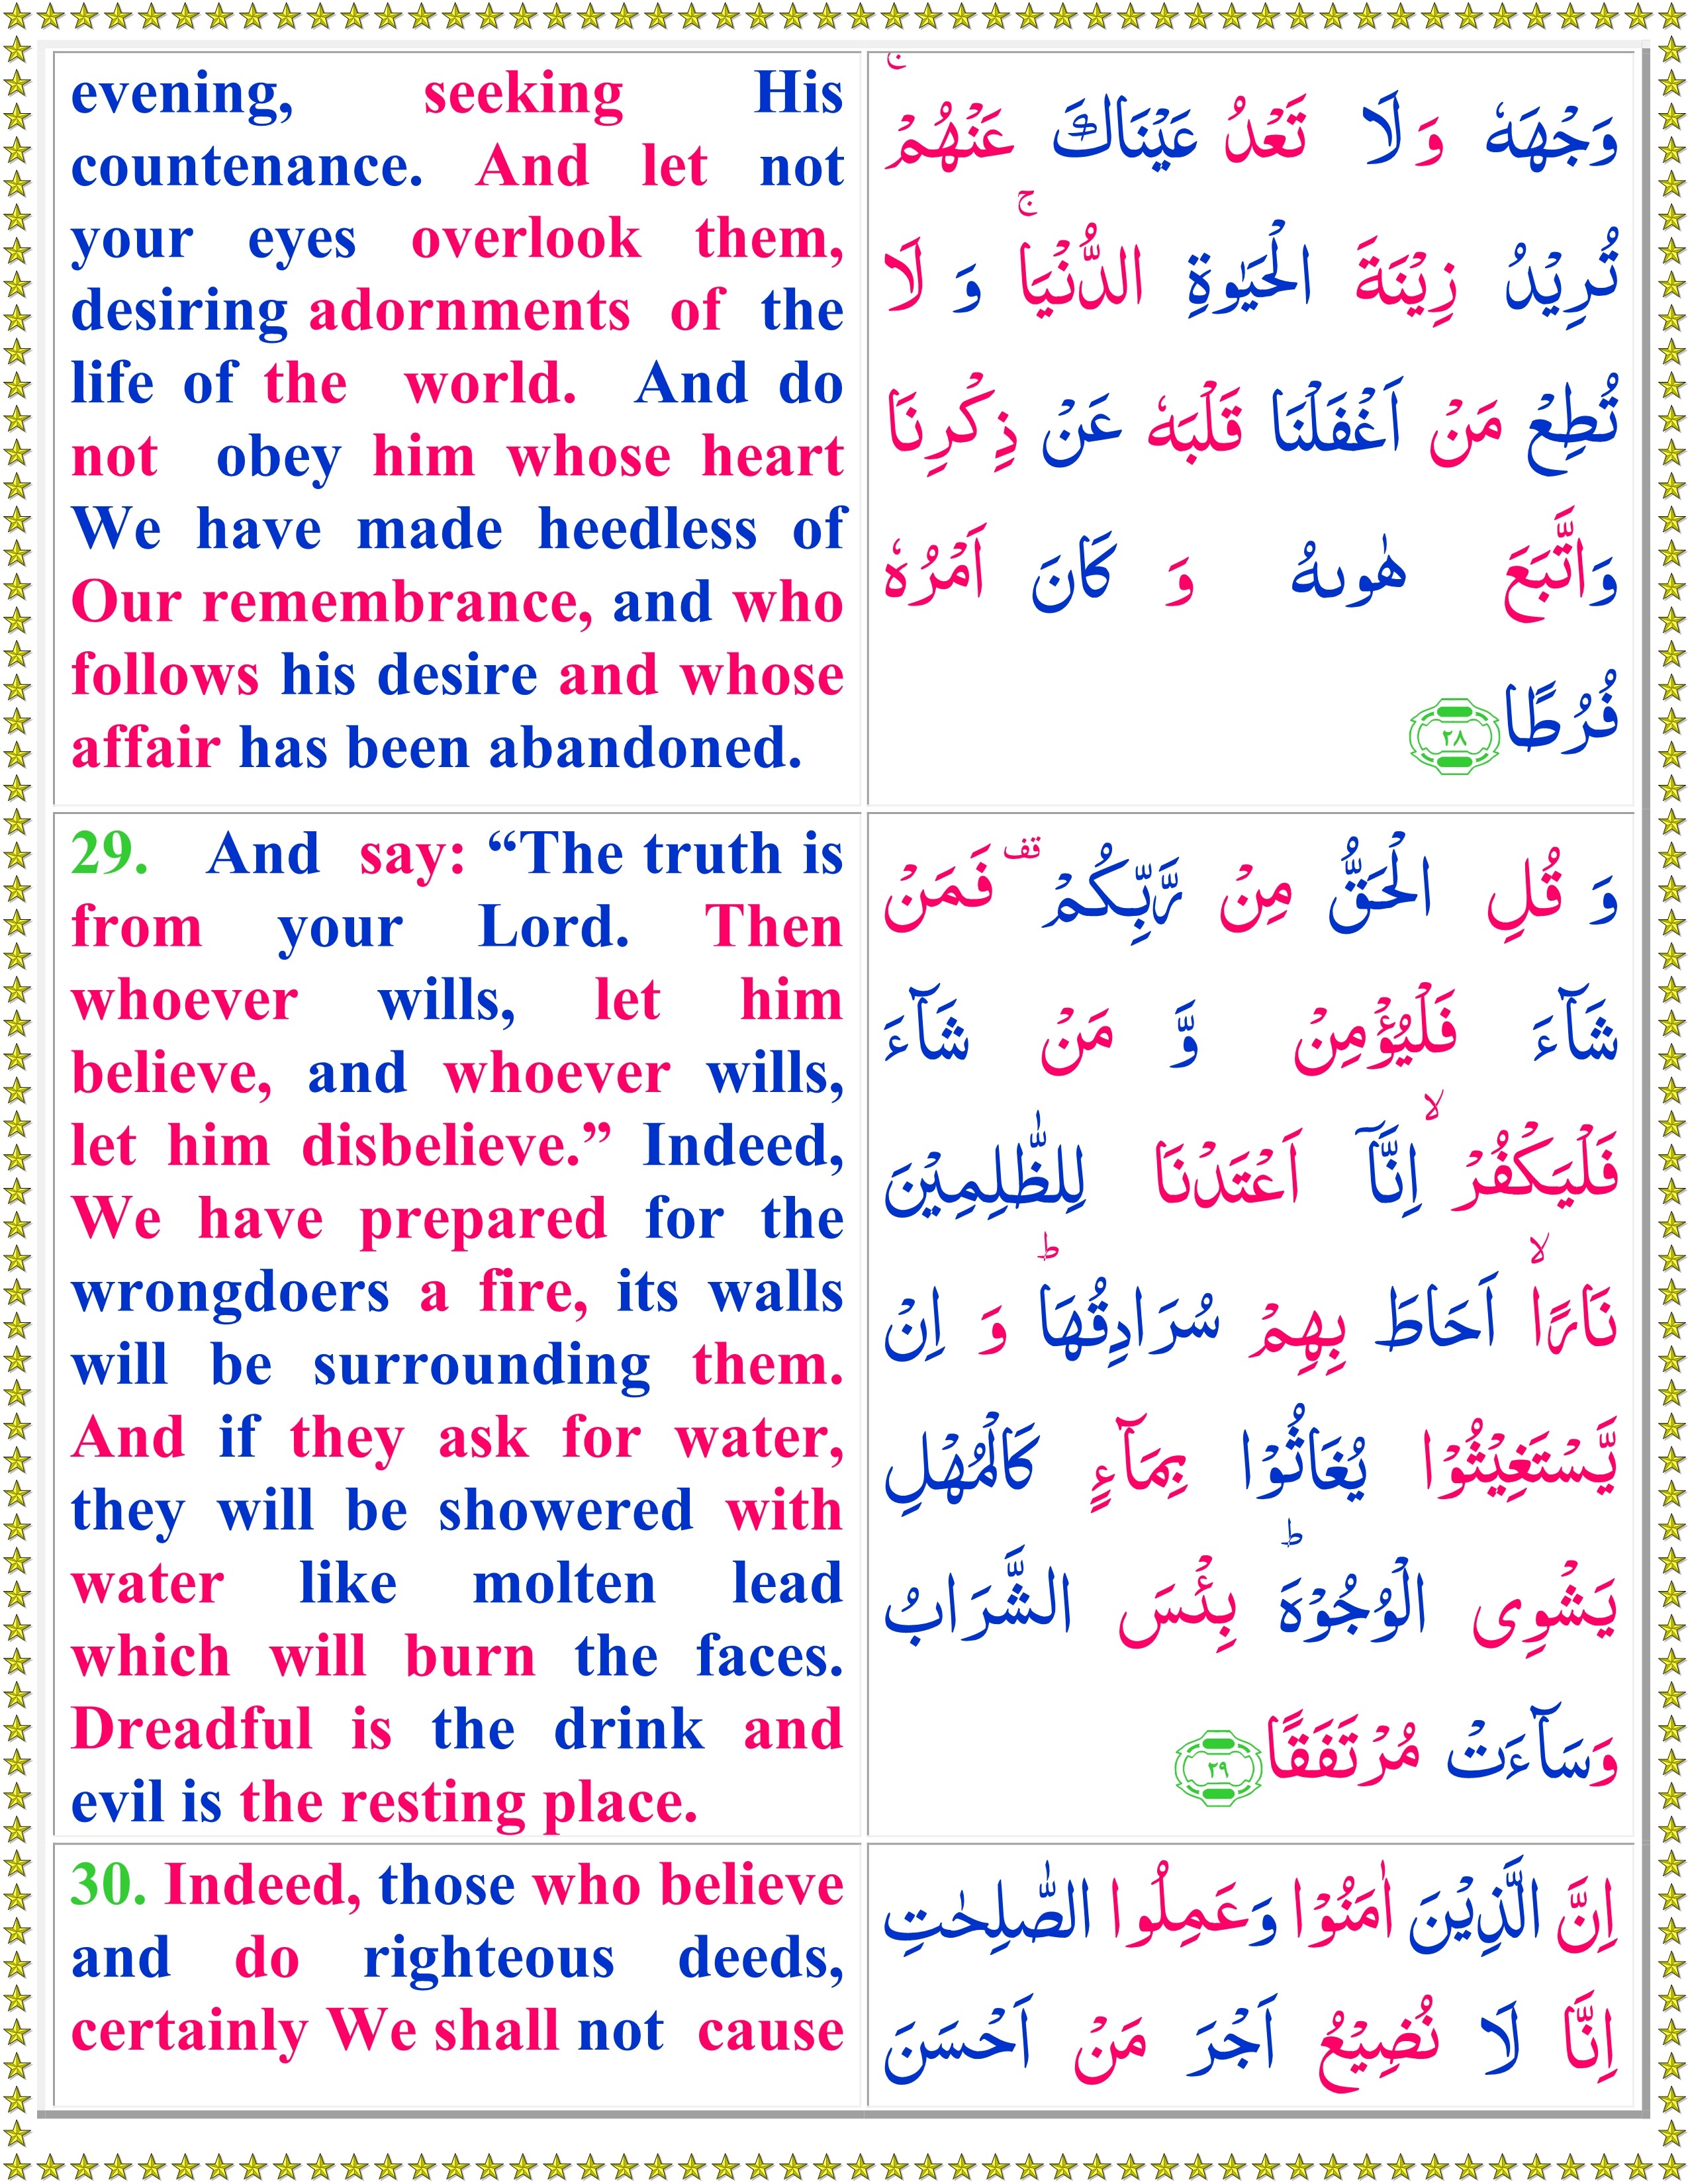 evening, seeking His
countenance. And let not
your eyes overlook them,
desiring adornments of the
life of the world. And do
not obey him whose heart
We have made heedless of
Our remembrance, and who
follows his desire and whose
affair has been abandoned.
وَجْهَهٗ وَ لَا تَعْدُ عَيْنَاكَ عَنْهُمْ ۚ
تُرِيْدُ زِيْنَةَ الْحَيٰوةِ الدُّنْيَا ۚ وَ لَا
تُطِعْ مَنْ اَغْفَلْنَا قَلْبَهٗ عَنْ ذِكْرِنَا
وَاتَّبَعَ هٰوىهُ وَ كَانَ اَمْرُهٗ
فُرُطًا ٢٨
29. And say: “The truth is
from your Lord. Then
whoever wills, let him
believe, and whoever wills,
let him disbelieve.” Indeed,
We have prepared for the
wrongdoers a fire, its walls
will be surrounding them.
And if they ask for water,
they will be showered with
water like molten lead
which will burn the faces.
Dreadful is the drink and
evil is the resting place.
وَ قُلِ الْحَقُّ مِنْ رَّبِّكُمْ قف فَمَنْ
شَآءَ فَلْيُؤْمِنْ وَّ مَنْ شَآءَ
فَلْيَكْفُرْ ۙ اِنَّآ اَعْتَدْنَا لِلظّٰلِمِيْنَ
نَارًا ۙ اَحَاطَ بِهِمْ سُرَادِقُهَا ؕ وَ اِنْ
يَّسْتَغِيْثُوْا يُغَاثُوْا بِمَآءٍ كَالْمُهْلِ
يَشْوِى الْوُجُوْهَ ؕ بِئْسَ الشَّرَابُ
وَسَآءَتْ مُرْتَفَقًا ٢٩
30. Indeed, those who believe
and do righteous deeds,
certainly We shall not cause
اِنَّ الَّذِيْنَ اٰمَنُوْا وَعَمِلُوا الصّٰلِحٰتِ
اِنَّا لَا نُضِيْعُ اَجْرَ مَنْ اَحْسَنَ